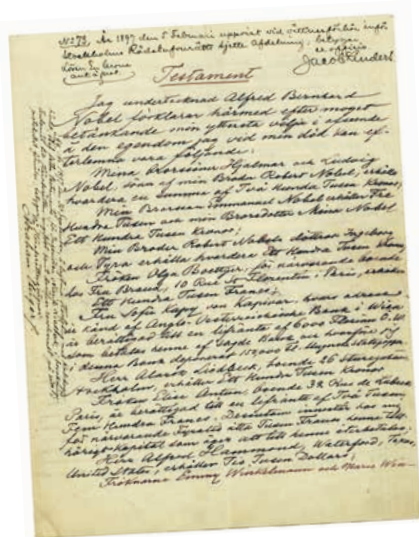 No 73. År 1897 den 5 Februari uppvist vid
Stockholms Rådstufvurätts sjette Afdelning; betygar
ex officio
Jacob
Testament
Jag undertecknad Alfred Bernhard
Nobel förklarar härmed efter moget
betänkande min yttersta vilja i afseende
å den egendom jag vid min död kan ef-
terlemna vara följande:
Mina Brorsöner Hjalmar och Ludvig
Nobel, söner af min Broder Robert Nobel, erhålla
hvardera en summa af Två Hundra Tusen Kronor;
Min Brorson Emmanuel Nobel erhåller Tre
Hundra Tusen och min Brorsdotter Mina Nobel
Ett Hundra Tusen Kronor;
Min Broder Robert Nobels döttrar Ingeborg
och Tyra erhålla hvardera Ett Hundra Tusen Kronor;
Fröken Olga Boettger, för närvarande boende
hos Fru Brand, 10 Rue St Florentin i Paris, erhåller
Ett Hundra Tusen Francs;
Fru Sofie Kapy von Kapivar, hvars adress
är känd af Anglo-Oesterreichische Bank i Wien
är berättigad till en lifränta af 6000 Florins Ö.W.
som betalas henne af sagde Bank och hvarför jag
i denna Bank deponerat 150,000 Fl. i Ungerska Statspapper;
Herr Alarik Liedbeck, boende 26 Sturegatan,
Stockholm, erhåller Ett Hundra Tusen Kronor;
Fröken Elise Antun, boende 32 Rue de Lubeck,
Paris, är berättigad till en lifränta af Två Tusen
Fem Hundra Francs. Dessutom innestår hos mig
för närvarande Fyratio åtta Tusen Francs henne till-
hörigt kapital som äger att till henne återbetalas;
Herr Alfred Hammond, Waterford, Texas,
United States, erhåller Tio Tusen Dollars;
Fröknarna Emmy Winkelmann och Marie Win-